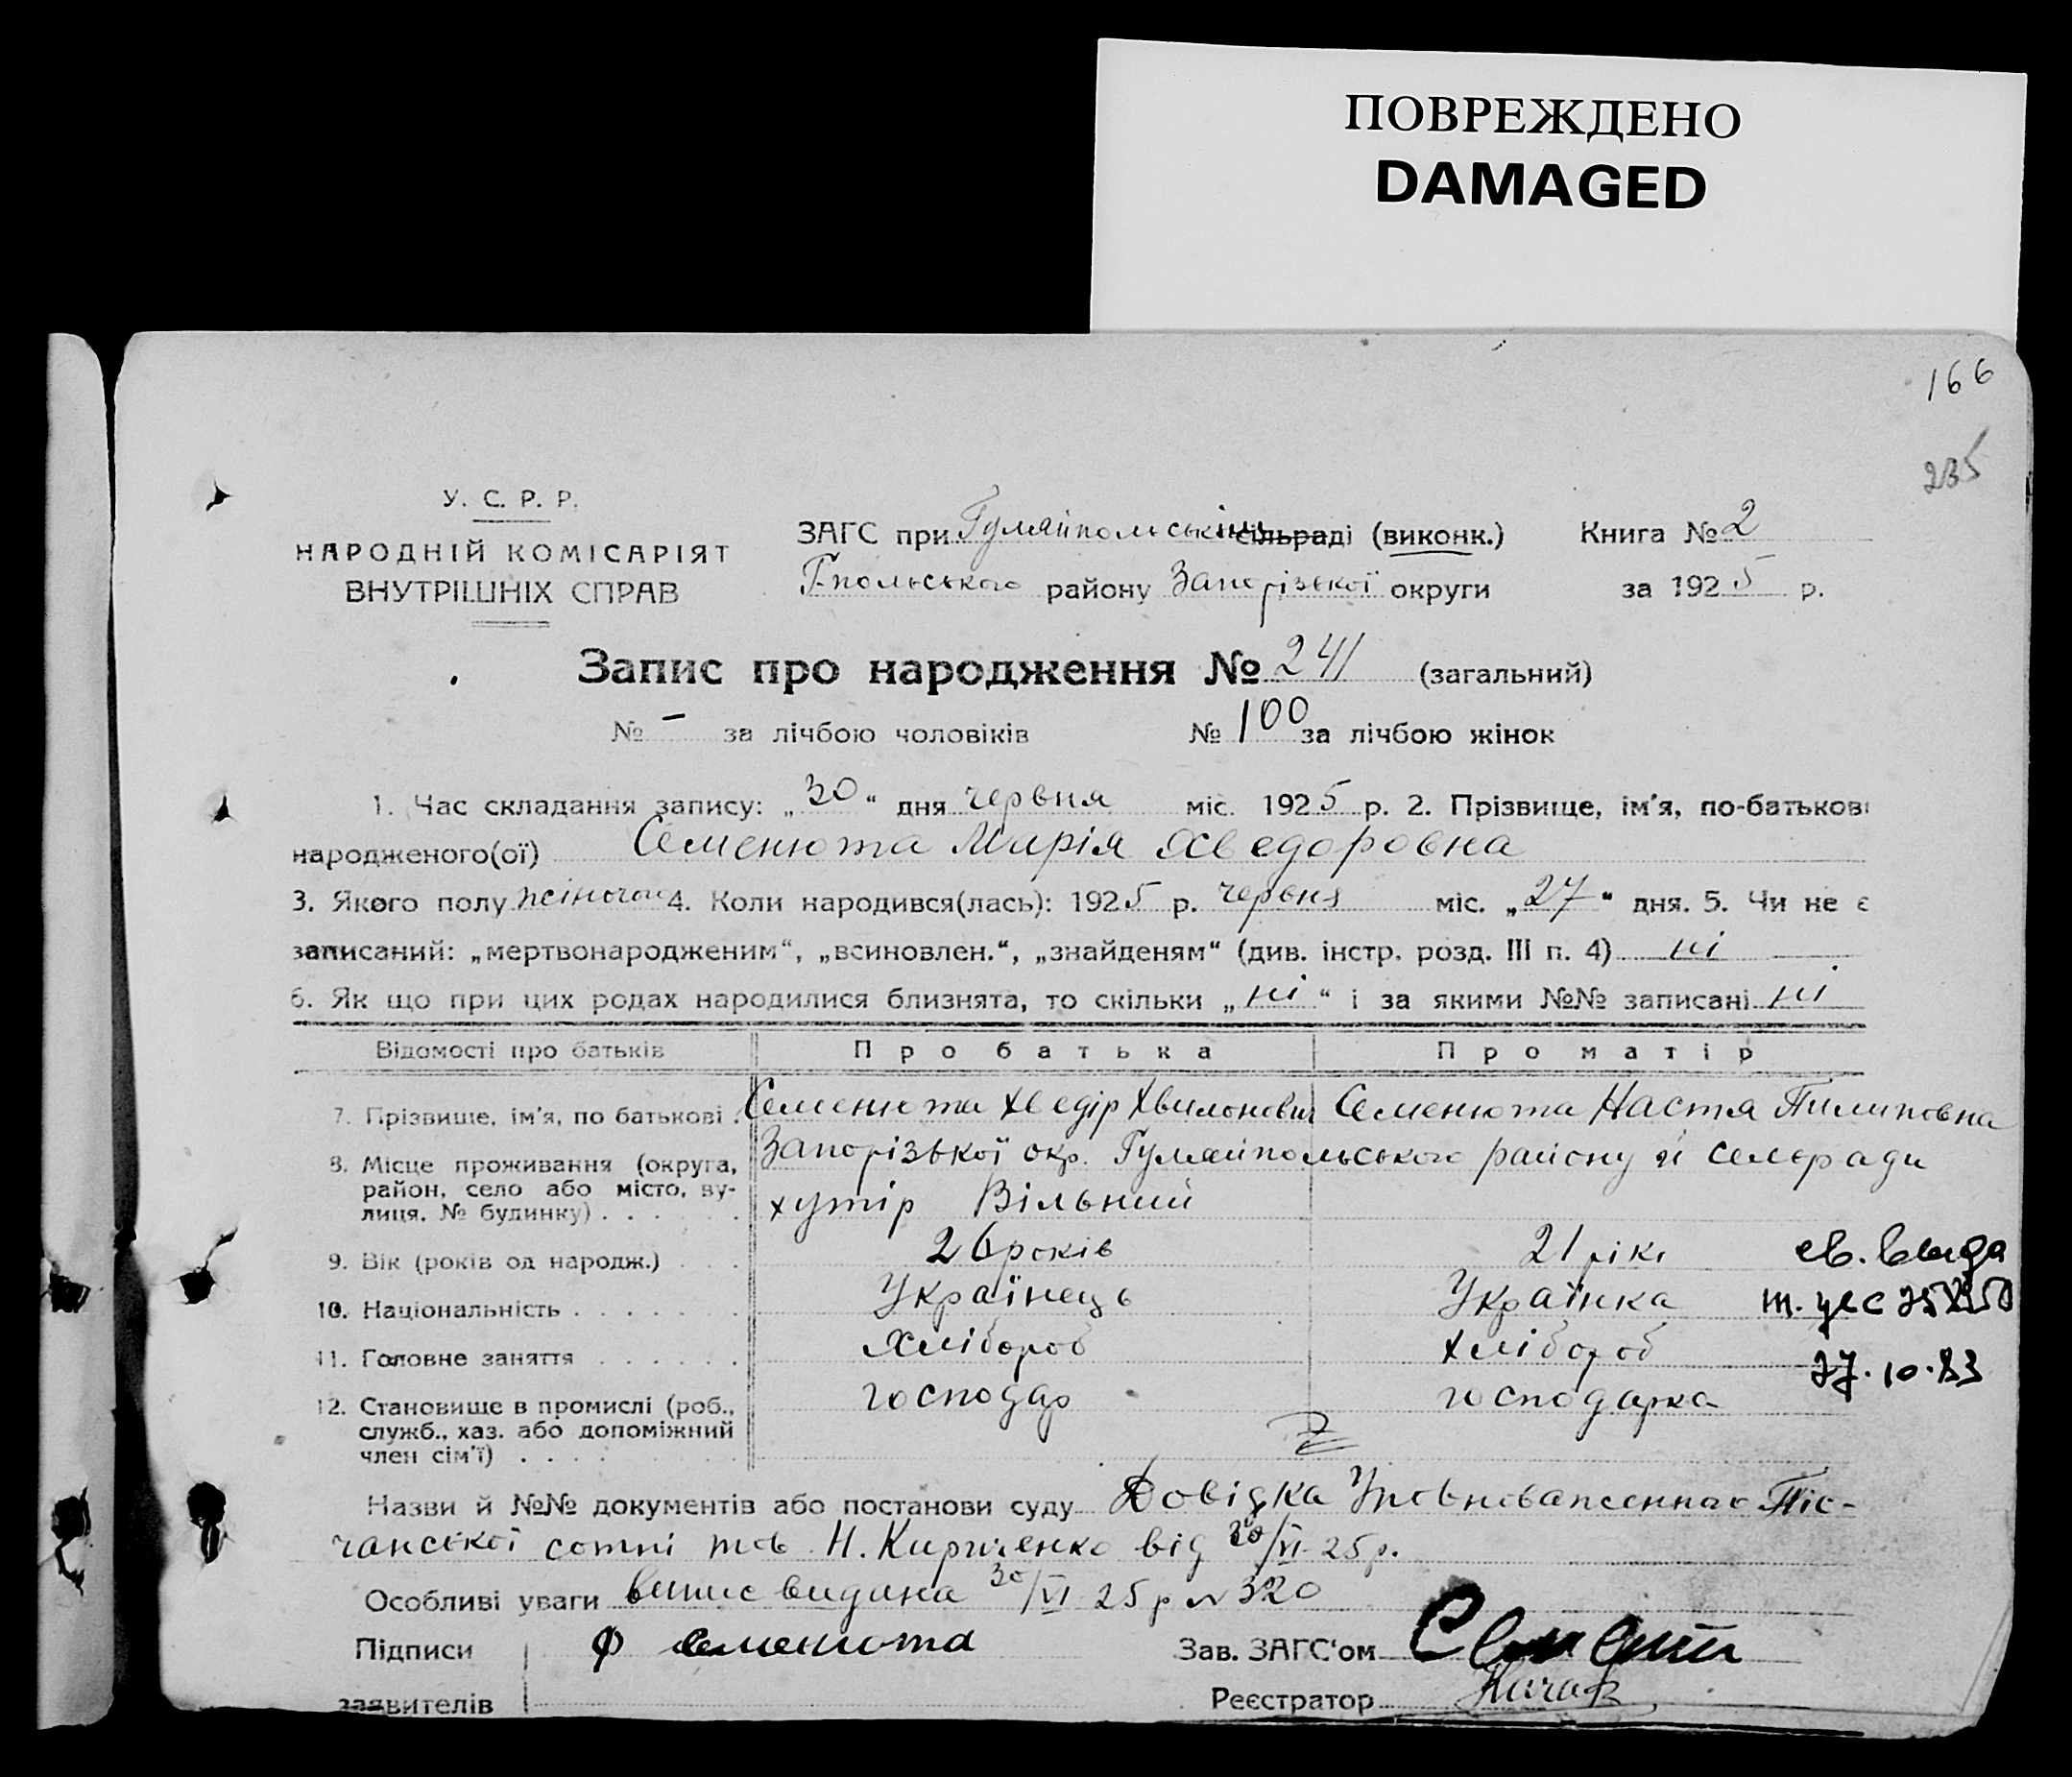 ПОВРЕЖДЕНО
DAMAGED
166
235
У. С. Р. Р.
НАРОДНІЙ КОМІСАРІЯТ
ВНУТРІШНІХ СПРАВ
ЗАГС при Гуляйпольськім сільраді (виконк.) Книга № 2
Г-польського району Запорізької округи за 1925 р.
Запис про народження № 241 (загальний)
№ – за лічбою чоловіків № 100 за лічбою жінок
1. Час складання запису: „30“ дня червня міс. 1925 р. 2. Прізвище, ім'я, по-батькові
народженого(ої) Семенюта Марія Хведоровна
3. Якого полу жіночого 4. Коли народився(лась): 1925 р. червня міс. „27“ дня. 5. Чи не є
записаний: „мертвонародженим“, „всиновлен.“, „знайденям“ (див. інстр. розд. III п. 4) ні
6. Як що при цих родах народилися близнята, то скільки „ні“ і за якими №№ записані ні
Відомості про батьків Про батька Про матір
7. Прізвище, ім'я, по батькові . Семенюта Хведір Хвилонович Семенюта Настя Пилиповна
8. Місце проживання (округа, район, село або місто, вулиця, № будинку) . . . . Запорізької окр. Гуляйпольського району й селєради
хутір Вільний
9. Вік (років од народж.) . . . 26 років 21 рік
10. Національність . . . . . . . Українець Українка
11. Головне заняття . . . . . . Хлібороб хлібороб
12. Становище в промислі (роб., служб., хаз. або допоміжний член сім'ї) . . . . господар господарка
св. выда
27.10.83
Назви й №№ документів або постанови суду Довідка Уповноваженного Піс-
чанської сотні тов. Н. Кириченко від 30/VI-25р.
Особливі уваги випис видана 30/VI 25 р N 320
Підписи Ф Семенюта Зав. ЗАГС'ом
заявителів Реєстратор